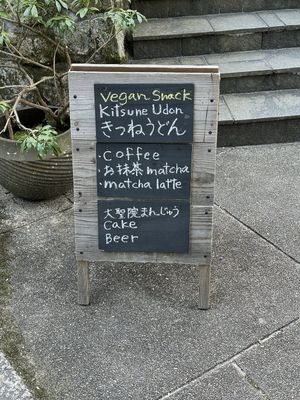 vegan Snack
Kitsune Udon
きつねうどん
・Coffee
・お抹茶 matcha
・matcha latte
大聖院まんじゅう
Cake
Beer